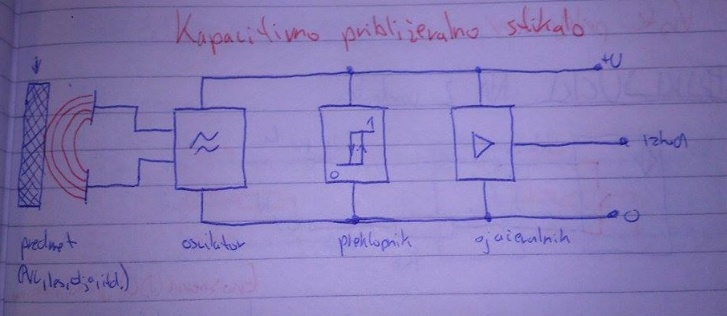 Kapacitivno približevalno stikalo
+U
1
0
izhod
0
predmet oscilator preklopnik ojačevalnik
les, itd.)